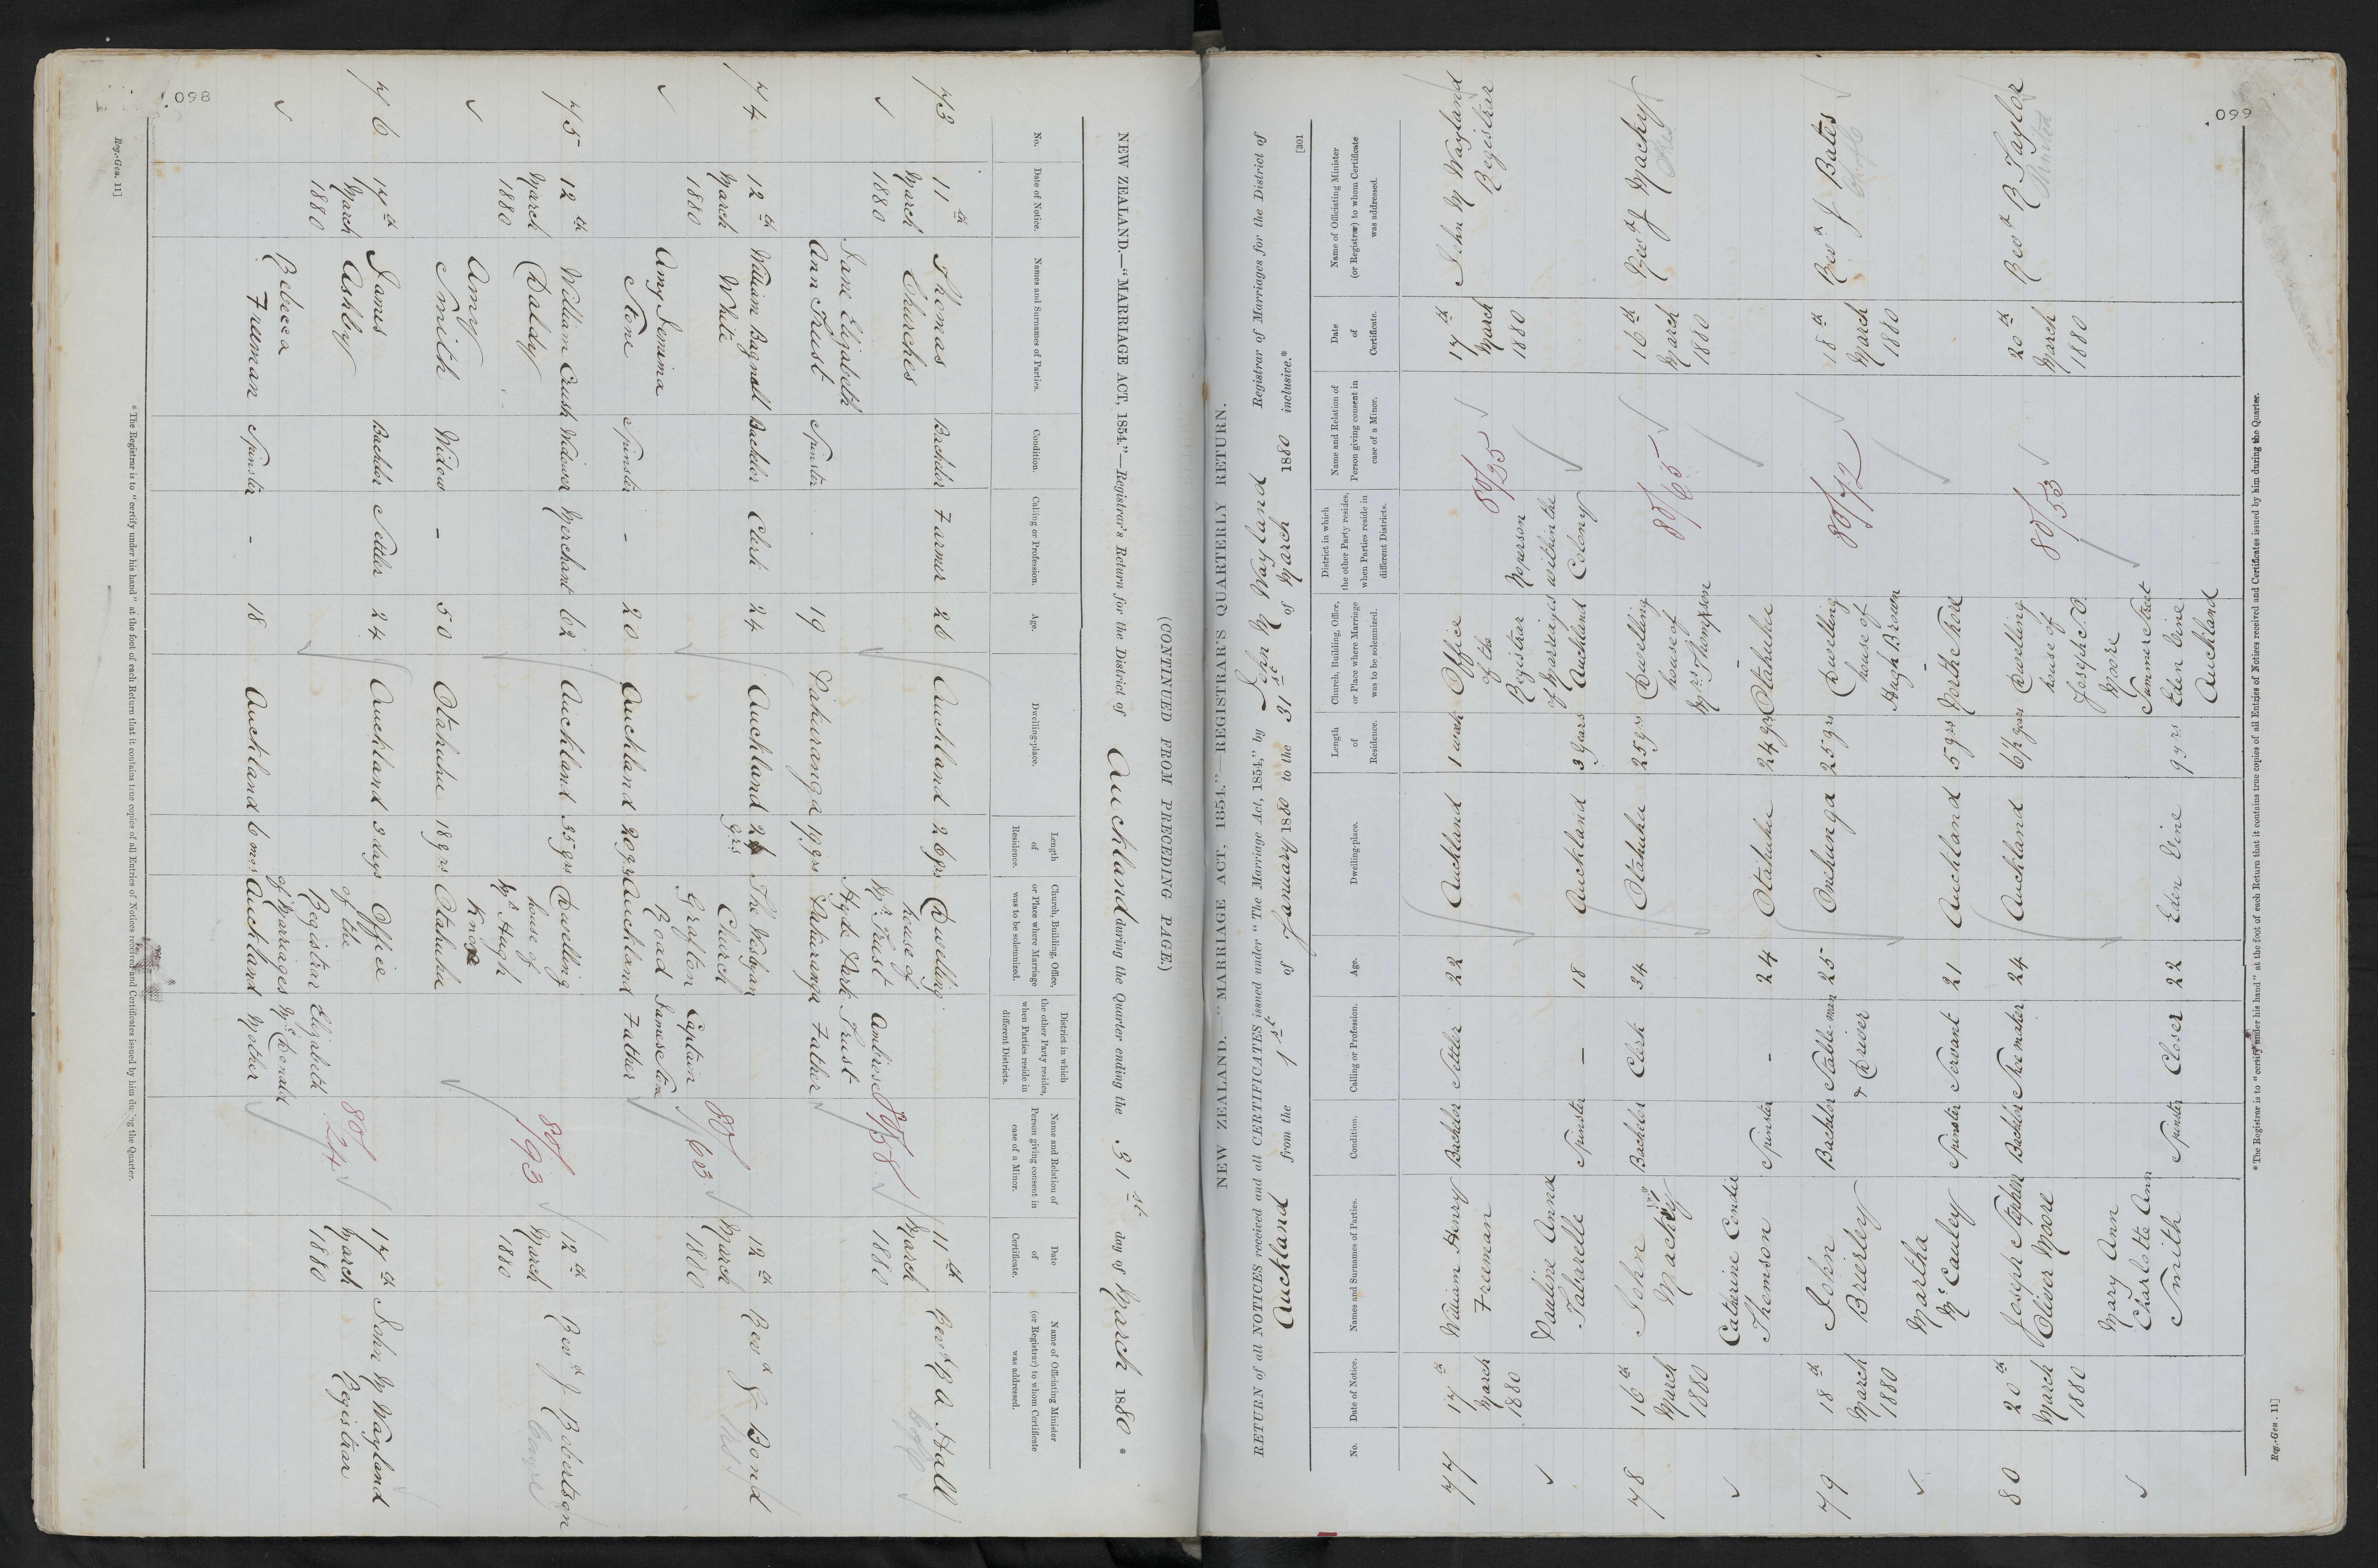 098
(CONTINUED FROM PRECEDING PAGE.)
NEW ZEALAND.—"MARRIAGE ACT, 1854."—Registrar's Return for the District of Auckland during the Quarter ending the 31st day of March 1880 *
No.
Date of Notice.
Names and Surnames of Parties.
Condition.
Calling or Profession.
Age.
Dwelling-place.
Length of Residence.
Church, Building, Office, or Place where Marriage was to be solemnized.
District in which the other Party resides, when Parties reside in different Districts.
Name and Relation of Person giving consent in case of a Minor.
Date of Certificate.
Name of Officiating Minister (or Registrar) to whom Certificate was addressed.
73 11th Thomas Bachelor Farmer 26 Auckland 26 yrs Dwelling 11th Revd R A Hall
March Churches house of Ambrose 80/58 March
1880 Mr Trust 1880
Jane Elizabeth Hyde Park Trust
Ann Trust Spinster Pakuranga 19 yrs Pakuranga Father
19
74 12th William Bagnall Bachelor Clerk 24 Auckland 24 yrs The Wesleyan 12th Revd J Bond
March White Church 80/603 March
1880 Grafton Captain 1880
Amy Jemima Road James Stone
Stone Spinster - 20 Auckland 20 yrs Auckland Father
75 12th William Crush Widower Merchant 62 Auckland 35 yrs Dwelling 80/93 12th Revd J Robertson
March Daldy house of March
1880 Mr Hugh 1880
Amy Knox
Smith Widow - 50 Otahuhu 18 yrs Otahuhu
76 17th James Bachelor Settler 24 Auckland 3 days Office 80/24 17th John M Wayland
March Ashby of the March Registrar
1880 Registrar Elizabeth 1880
Rebecca of Marriages McDonald
Freeman Spinster - 18 Auckland 6 mos Auckland Mother
* The Registrar is to "certify under his hand" at the foot of each Return that it contains true copies of all Entries of Notices received and Certificates issued by him during the Quarter.
Reg.-Gen. 11]
099
[301
NEW ZEALAND.—"MARRIAGE ACT, 1854."—REGISTRAR'S QUARTERLY RETURN.
RETURN of all NOTICES received and all CERTIFICATES issued under "The Marriage Act, 1854," by John M Wayland Registrar of Marriages for the District of
Auckland from the 1st of January 1880 to the 31st of March 1880 inclusive.*
No.
Date of Notice.
Names and Surnames of Parties.
Condition.
Calling or Profession.
Age.
Dwelling-place.
Length of Residence.
Church, Building, Office, or Place where Marriage was to be solemnized.
District in which the other Party resides, when Parties reside in different Districts.
Name and Relation of Person giving consent in case of a Minor.
Date of Certificate.
Name of Officiating Minister (or Registrar) to whom Certificate was addressed.
77 17th William Henry Bachelor Settler 22 Auckland 1 week Office 17th John M Wayland
March Freeman of the 80/95 March Registrar
1880 Registrar No person 1880
Pauline Anna of Marriages within the
Tabarelle Spinster - 18 Auckland 3 years Auckland Colony
78 16th John Bachelor Clerk 34 Otahuhu 25 yrs Dwelling 16th Revd J Macky
March Macky house of 80/65 March
1880 Mrs Thompson 1880
Catherine Condie -
Thomson Spinster - 24 Otahuhu 24 yrs Otahuhu
79 18th John Bachelor Stable-man 25 Onehunga 25 yrs Dwelling 18th Revd J Bates
March Brierley & Driver house of 80/72 March
1880 Hugh Brown 1880
Martha -
McCauley Spinster Servant 21 Auckland 5 yrs North Shore
80 20th Joseph Stephen Bachelor Shoemaker 24 Auckland 6½ years Dwelling 20th Revd R Taylor
March Oliver Moore house of 80/53 March
1880 Joseph S.O. 1880
Mary Ann Moore
Charlotte Ann Turner Street
Smith Spinster Closer 22 Eden Vine 9 yrs Eden Vine
Auckland
* The Registrar is to "certify under his hand" at the foot of each Return that it contains true copies of all Entries of Notices received and Certificates issued by him during the Quarter.
Reg.-Gen. 11]